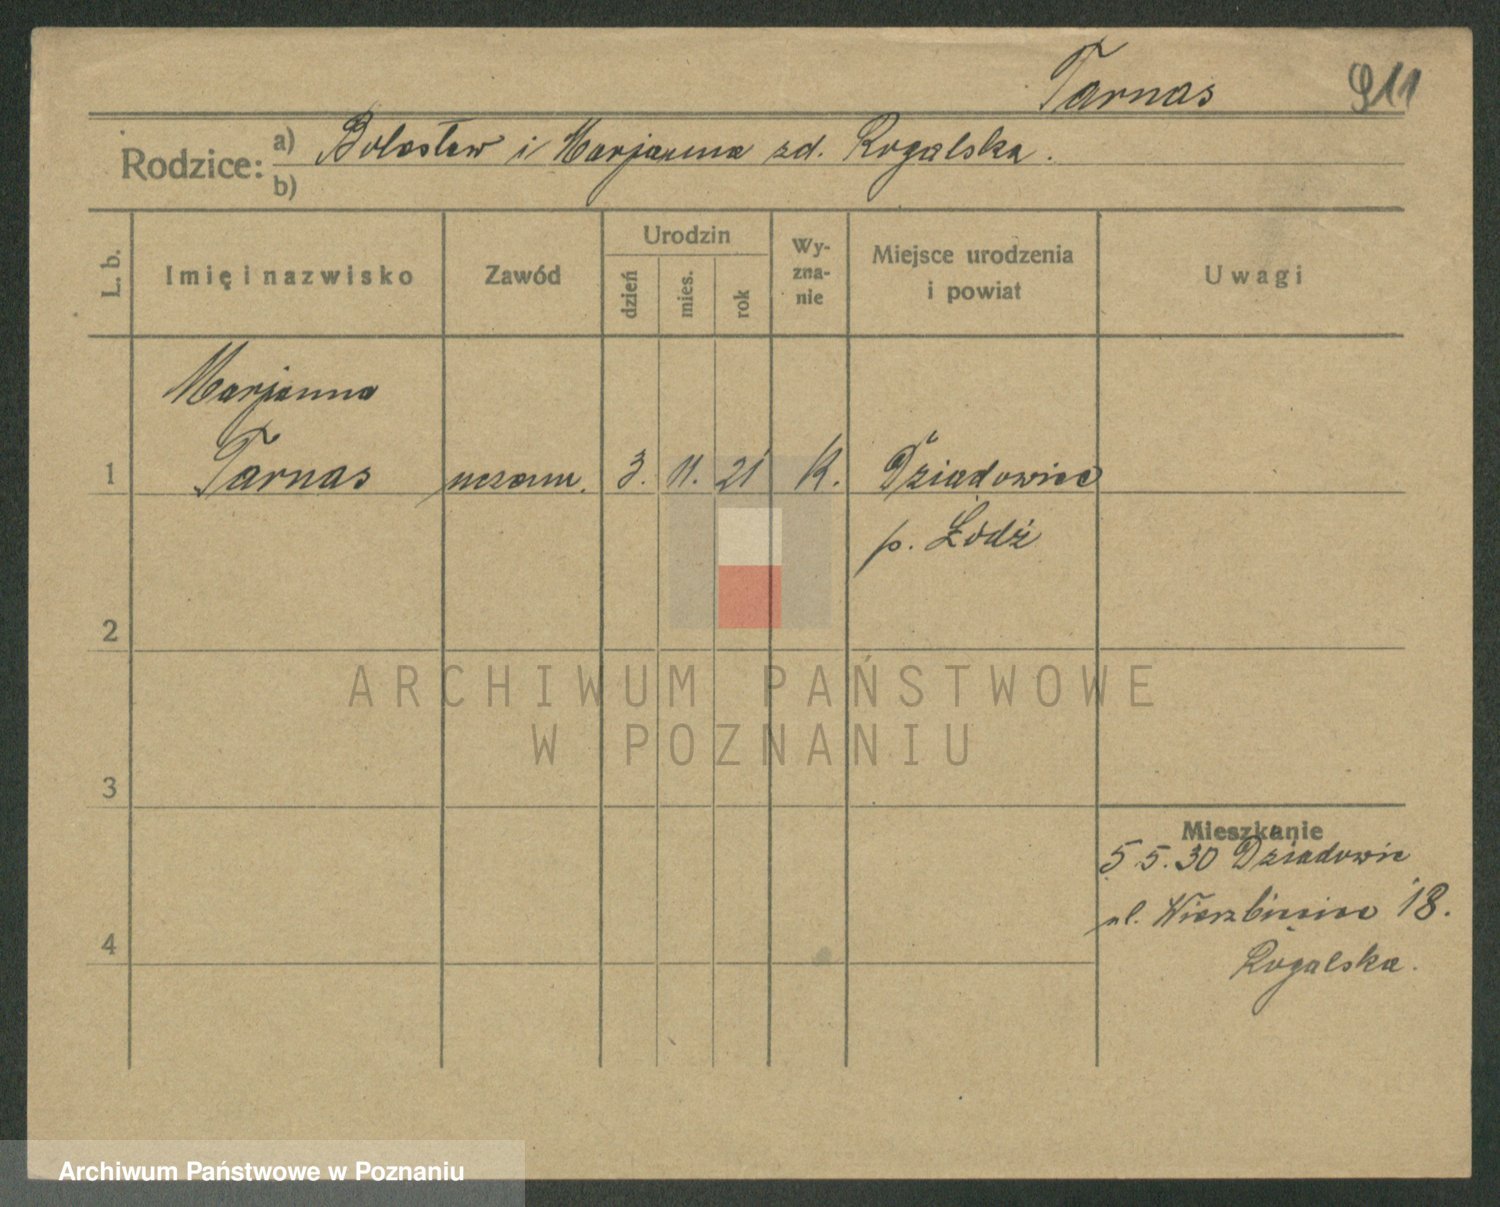 Tarnas 911
Rodzice: a) Bolesław i Marjanna zd. Rogalska.
b)
L. b. Imię i nazwisko Zawód Urodzin dzień mies. rok Wyzna-nie Miejsce urodzenia i powiat Uwagi
Marjanna
1 Tarnas uczenn. 3. 11. 21 K. Dziadowice
p. Łódź
2
ARCHIWUM PAŃSTWOWE
W POZNANIU
3
Mieszkanie
5 5. 30 Dziadowic
ul. Wierzbięcice 18.
4
Rogalska.
Archiwum Państwowe w Poznaniu